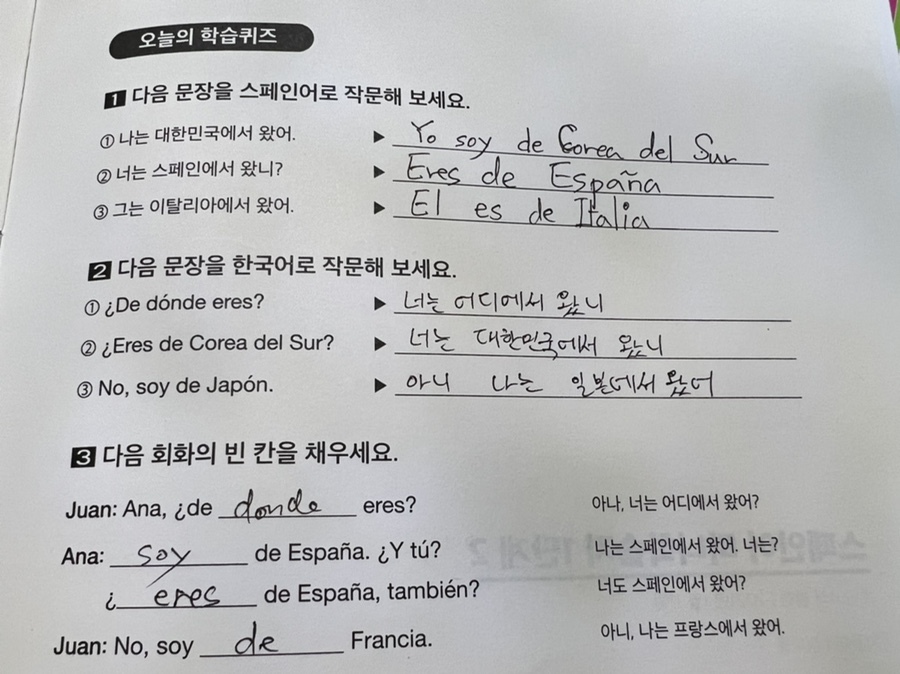 오늘의 학습퀴즈
1 다음 문장을 스페인어로 작문해 보세요.
① 나는 대한민국에서 왔어. ▶ Yo soy de Corea del Sur
② 너는 스페인에서 왔니? ▶ Eres de España
③ 그는 이탈리아에서 왔어. ▶ El es de Italia
2 다음 문장을 한국어로 작문해 보세요.
① ¿De dónde eres? ▶ 너는 어디에서 왔니
② ¿Eres de Corea del Sur? ▶ 너는 대한민국에서 왔니
③ No, soy de Japón. ▶ 아니 나는 일본에서 왔어
3 다음 회화의 빈 칸을 채우세요.
Juan: Ana, ¿de donde eres? 아나, 너는 어디에서 왔어?
Ana: soy de España. ¿Y tú? 나는 스페인에서 왔어. 너는?
¿ eres de España, también? 너도 스페인에서 왔어?
Juan: No, soy de Francia. 아니, 나는 프랑스에서 왔어.